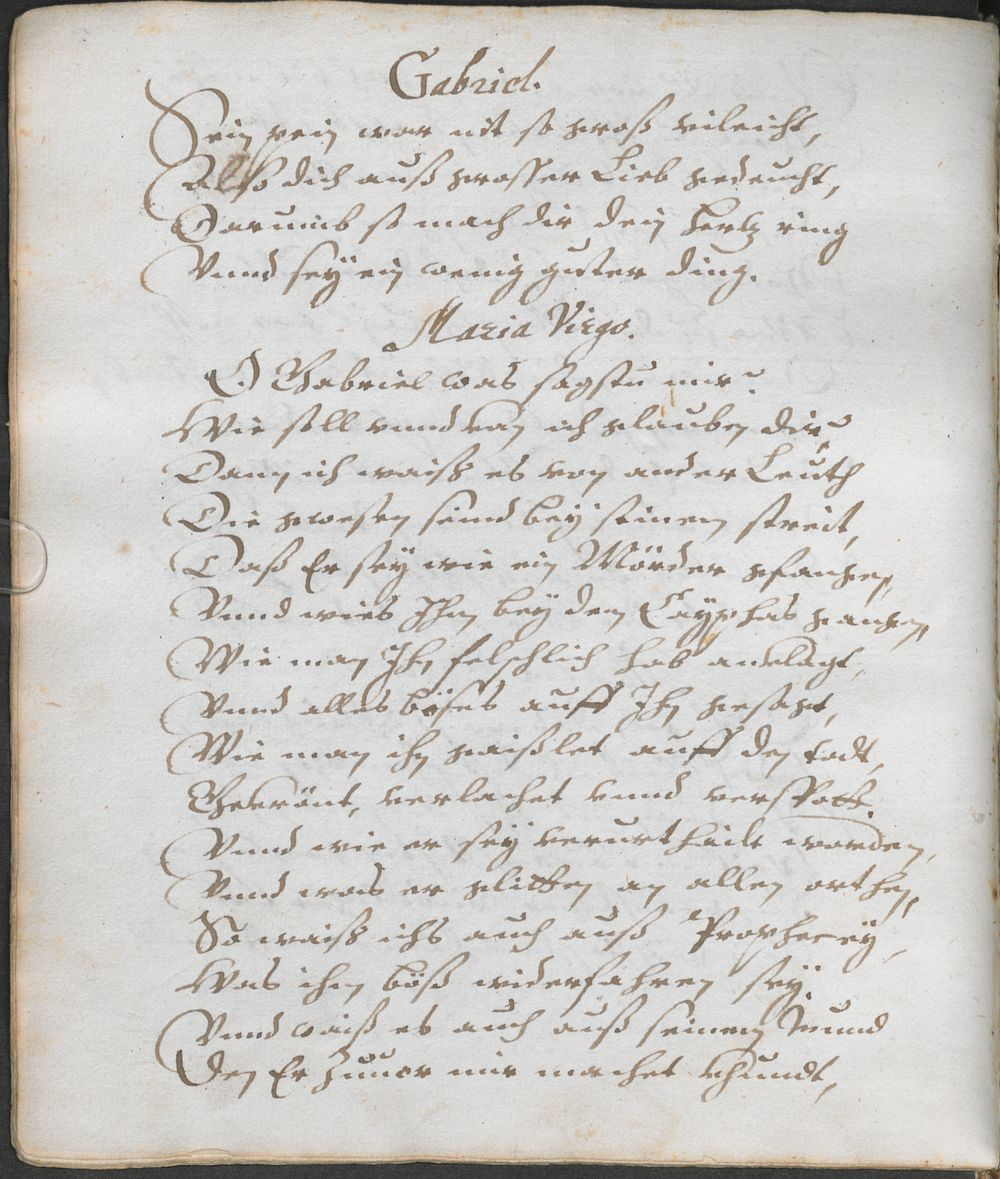 Gabriel.
Sein pein war nit so groß vileicht,
Also dich auß grosser Lieb gedeucht,
Darumb so mach dir dein hertz ring
Vnnd seÿ ein wenig guter ding.
Maria Virgo.
O Gabriel was sagstu mir?
Wie soll vnnd kan ich glauben dir?
Dann ich waiß es von ander Leuth
Die gwesen sind beÿ seinem streit,
Daß Er seÿ wie ein Mörder gfangen,
Vnnd wies Ihm beÿ dem Caÿphas gangen,
Wie man Ihn felschlich hab anklagt,
Vnnd alles böses auff Ihn gesagt,
Wie man ihn gaißlet auff den todt,
Gekrönt, verlachet vnnd verspott.
Vnnd wie er seÿ verurthailt worden,
Vnnd was er glitten an allen orthen,
So waiß ichs auch auß Propheceÿ,
Was ihm böß widerfahren seÿ.
Vnnd waiß es auch auß seinem Mund
Den Er zuuor mir machet khundt,